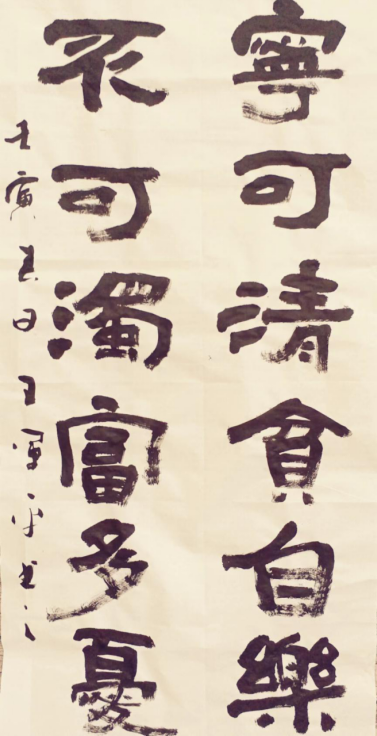 寧可清貧自樂
不可濁富多憂
壬寅春日王運平書